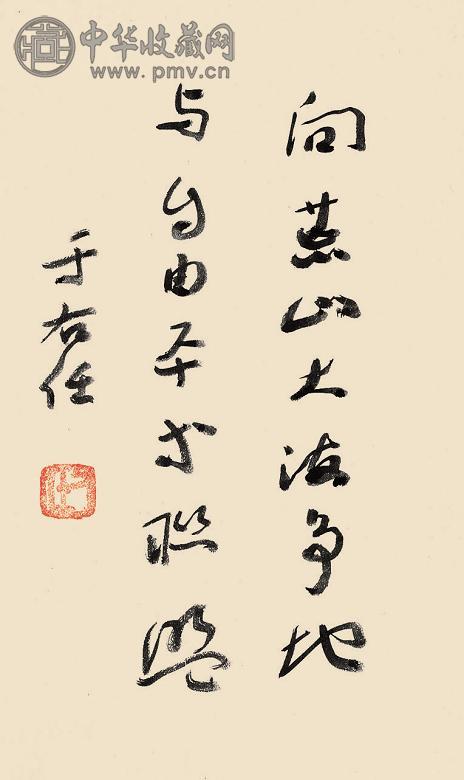 中华收藏网
www.pmv.cn
向燕山大海争地
与自由平等联盟
于右任